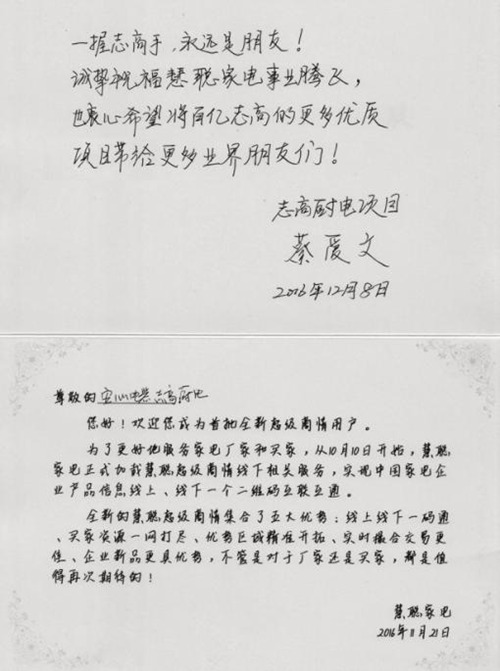 一握志商手，永远是朋友！
诚挚祝福慧聪家电事业腾飞，
也衷心希望将百亿志高的更多优质
项目带给更多业界朋友们！
志高厨电项目
蔡爱文
2016年12月8日
尊敬的 电器志高厨电
您好！欢迎您成为首批全新超级商情用户。
为了更好地服务家电厂家和买家，从10月10日开始，慧聪
家电正式加载慧聪超级商情线下相关服务，实现中国家电企
业产品信息线上、线下一个二维码互联互通。
全新的慧聪超级商情集合了五大优势：线上线下一码通
、买家资源一网打尽、优势区域精准开拓、实时撮合交易更
佳、企业新品更具优势，不管是对于厂家还是买家，都是值
得再次期待的！
慧聪家电
2016年11月21日